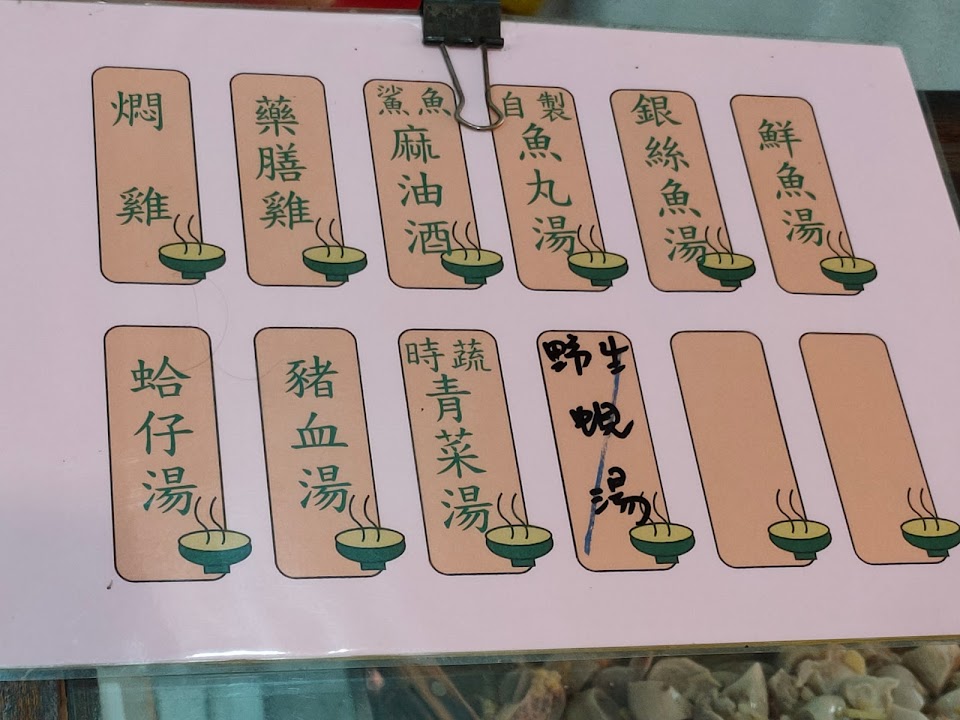 燜雞
藥膳雞
鯊魚
麻油酒
自製
魚丸湯
銀絲魚湯
鮮魚湯
蛤仔湯
豬血湯
時蔬
青菜湯
野生
蜆
湯